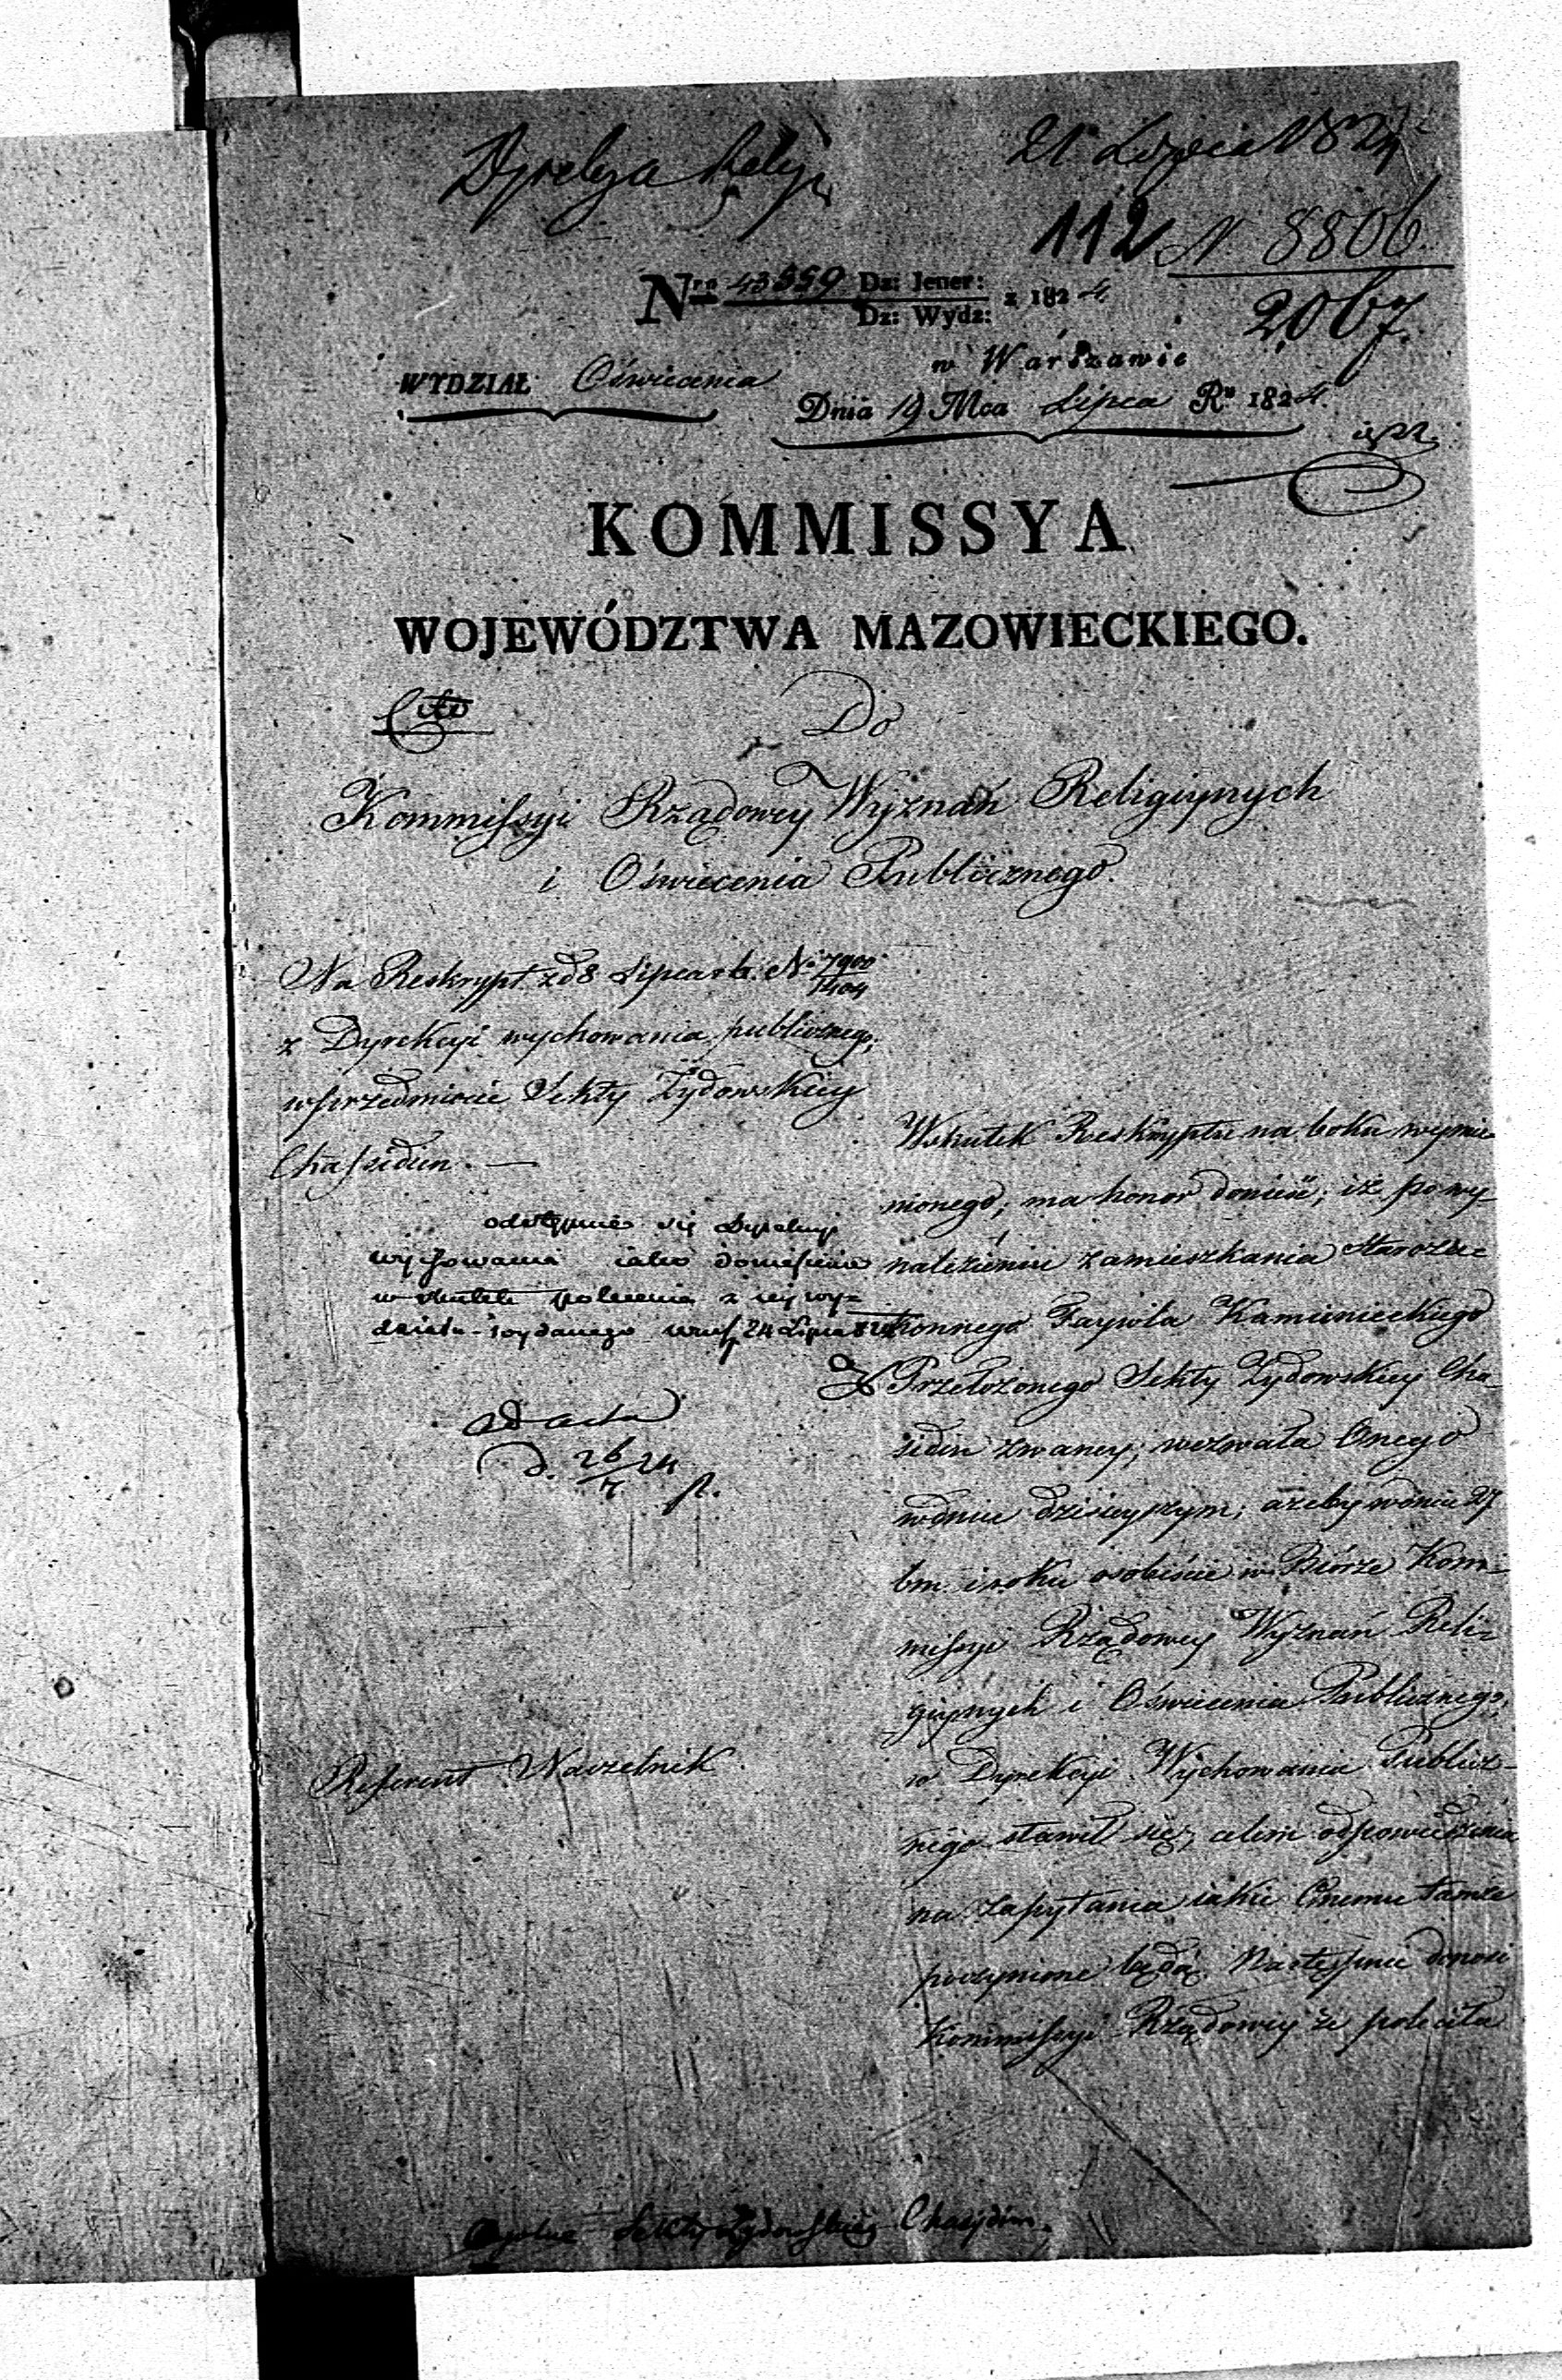 Dyrekcya Relig:
21 Lipca 1824
112 N. 8806
2067.
Nro 43559 Dz: Jener: z 1824
Dz: Wydz:
WYDZIAŁ Oświecenia
w Warszawie
Dnia 19 Mca Lipca Ru 1824.
KOMMISSYA
WOJEWÓDZTWA MAZOWIECKIEGO.
Cito
Do
Kommissyi Rządowey Wyznań Religiynych
i Oświecenia Publicznego.
Na Reskrypt z d 8 Lipca r. b. No 7900/1404
z Dyrekcyi wychowania publicznego,
w przedmiocie Sekty Żydowskiey
Chassidim. —
odstępuie się Dyrekcyi
wychowania iako doniesienie
w skutek polecenia z iey wy-
działu wydanego 24 Lipca
ad acta
d. 26/7 24
Referent Naczelnik
Wskutek Reskryptu na boku wymie-
nionego, ma honor donieść; iż po wy-
nalezieniu zamieszkania Staroza-
konnego Faywla Kamienieckiego
Przełożonego Sekty Żydowskiey Cha-
sidin zwaney, wezwała Onego
w dniu dzisieyszym; ażeby w dniu 27
bm. i roku osobiście w Biórze Kom-
missyi Rządowey Wyznań Reli-
giynych i Oświecenia Publicznego,
w Dyrekcyi Wychowania Publicz-
nego stawił się, celem odpowiedzenia
na zapytania iakie Onemu tamże
poczynione będą. Następnie donosi
Kommissyi Rządowey że poleciła
Sekty Żydowskiey Chasydim.